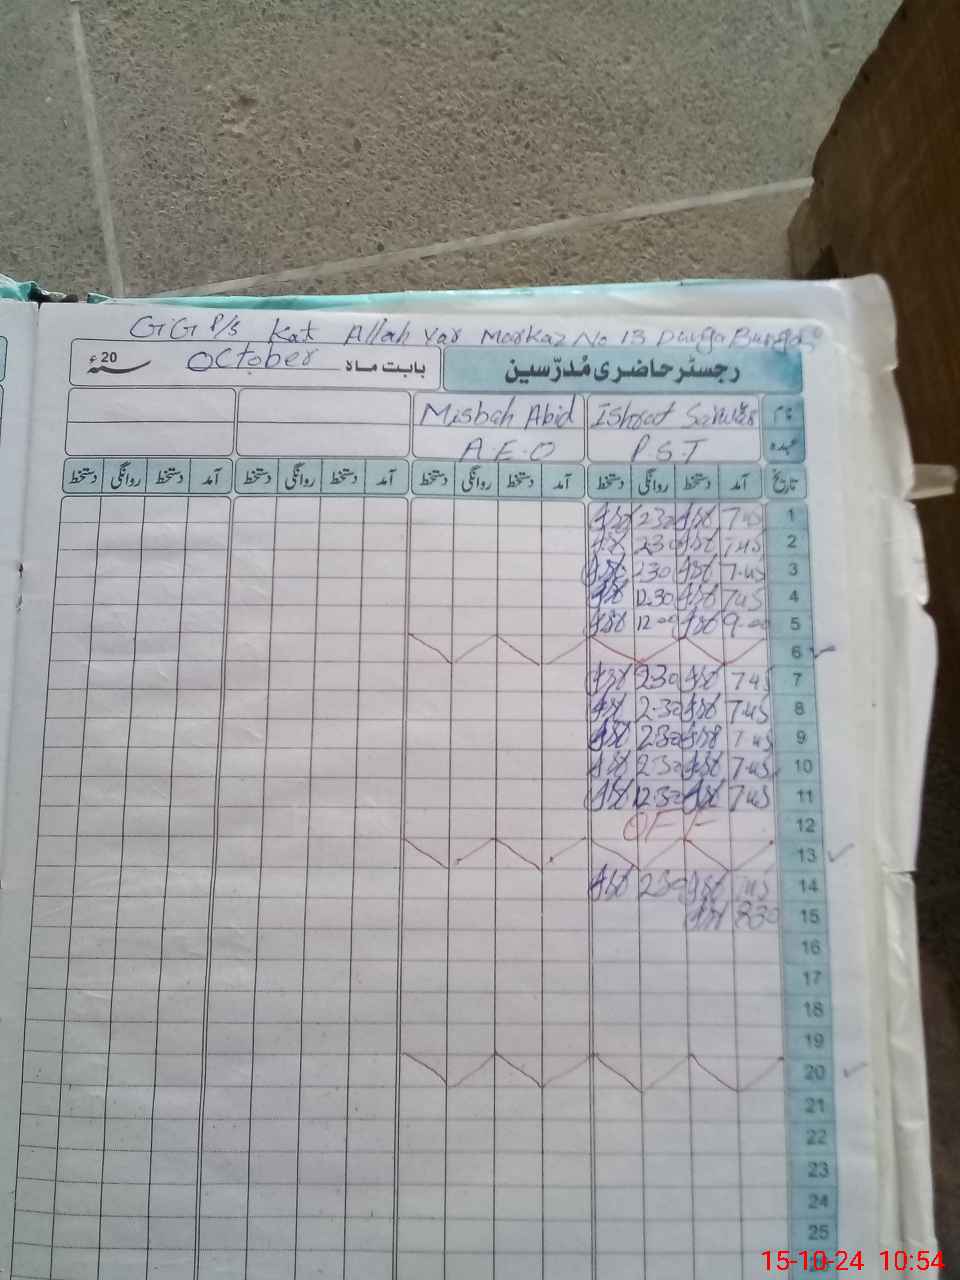 GGP/S Kat Allah Yar Markaz No 13
رجسٹر حاضری مُدرّسین بابت ماہ October سنہ 20ء
نام Ishrat Sarwar Misbah Abid
عہدہ P.S.T A.E.O
تاریخ آمد دستخط روانگی دستخط آمد دستخط روانگی دستخط آمد دستخط روانگی دستخط آمد دستخط روانگی دستخط
1 7 45 2 30
2 7 45 2 30
3 7.45 2 30
4 7 45 12.30
5 9-00 12 00
6
7 7 45 2 30
8 7.45 2.30
9 7 45 2 30
10 7.45 2 30
11 7 45 12.30
12 OFF
13
14 7 45 2 30
15 8 30
16
17
18
19
20
21
22
23
24
25
26
15-10-24 10:54